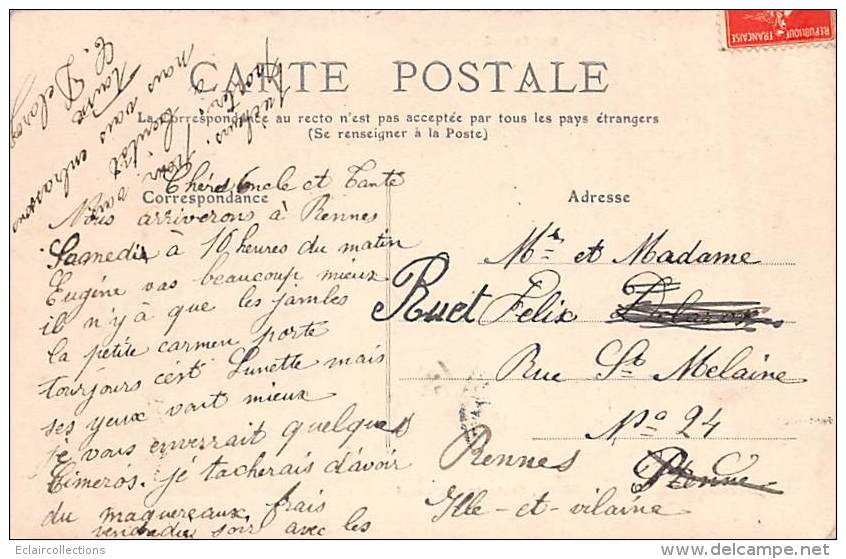 REPUBLIQUE FRANÇAISE
CARTE POSTALE
La correspondance au recto n'est pas acceptée par tous les pays étrangers
(Se renseigner à la Poste)
Correspondance
Adresse
Chers Oncle et Tante
Nous arriverons à Rennes
Samedi à 10 heures du matin
Eugéne vas beaucoup mieux
il n'y à que les jambes
la petite carmen porte
tourjours c'est Lunette mais
ses yeux vont mieux
je vous enverrait quelques
je tacherais d'avoir
du maquereaux frais
vendredie soir avec les
porteri
a bientôt
nous vous embrassons
tous
E. Delaros
Mr et Madame
Ruet Felix
Rue St Melaine
No 24
Rennes
Ille-et-vilaine
Eclaircollections
© delcampe.net